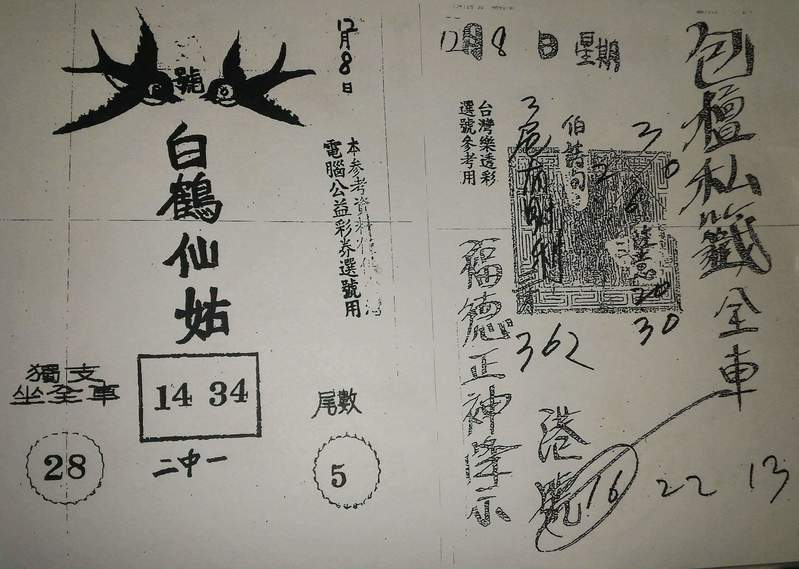 12月8日
號
白鶴仙姑
本參考資料
電腦公益彩券選號用
獨支
坐全車
28
14 34
二中一
尾數
5
12月8日 星期
包檀私籤全車
台灣樂透彩
選號參考用
伯詩句
30
20
30
362
福德正神降示
港號
16 22 13